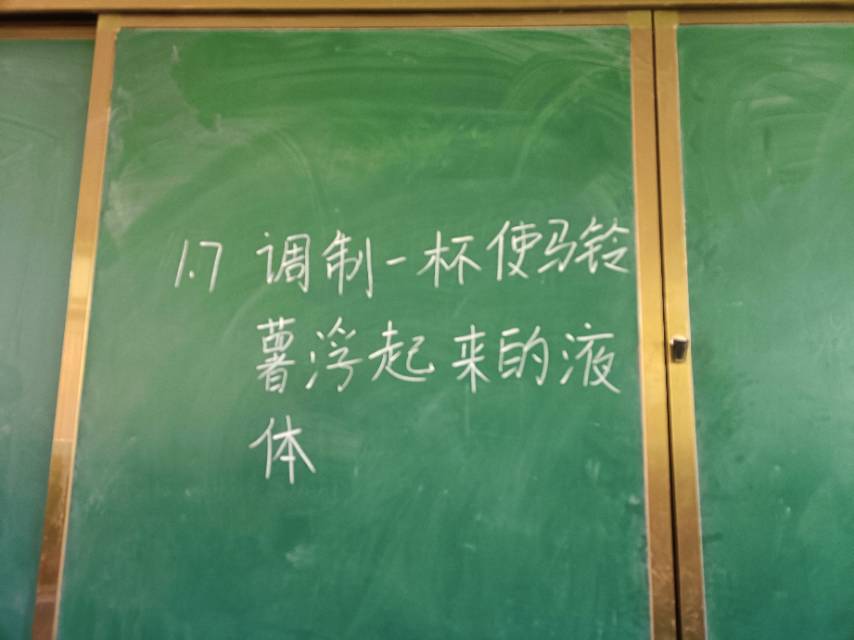 1.7 调制一杯使马铃
薯浮起来的液
体